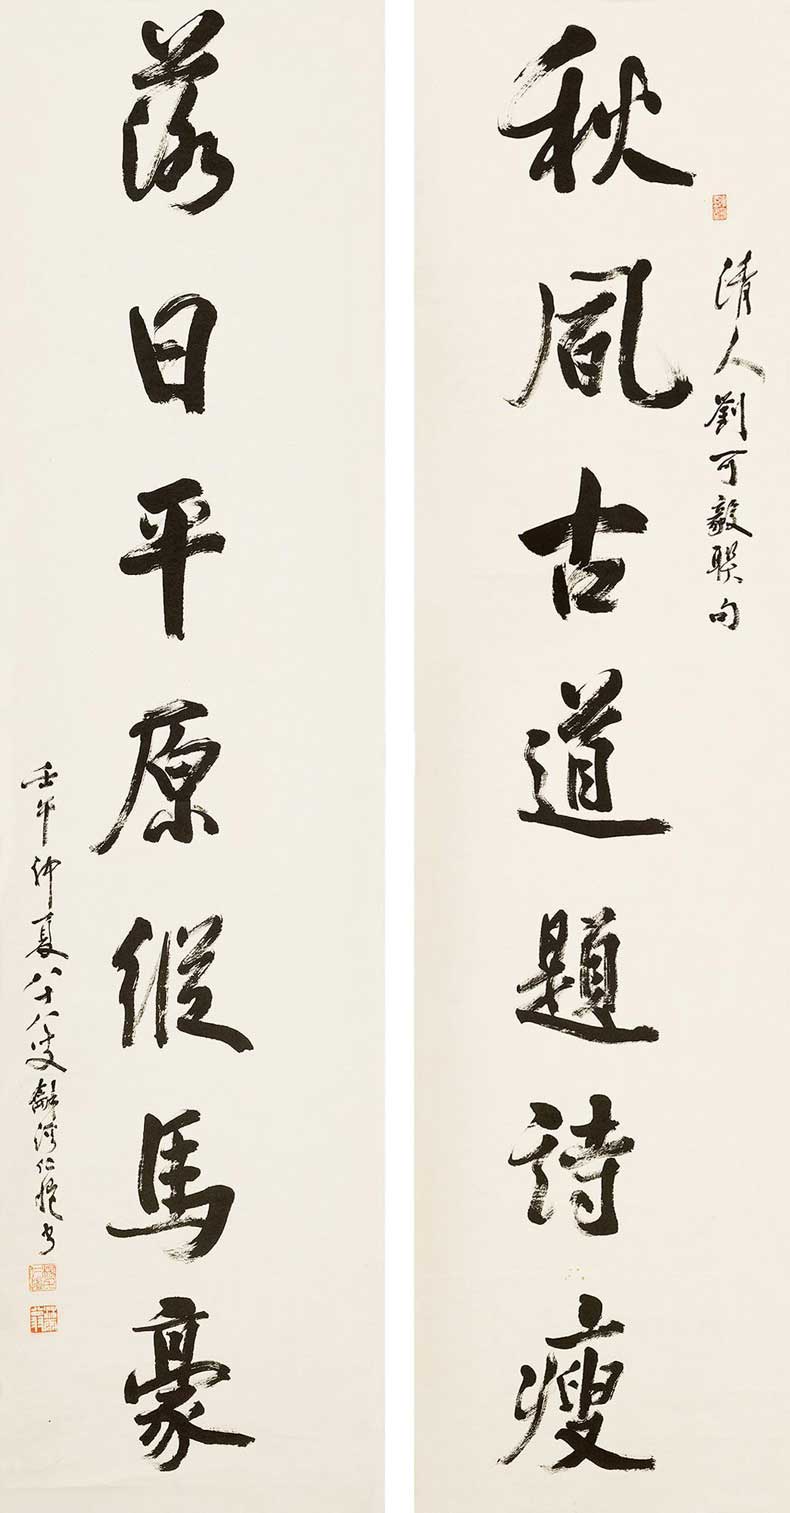 清人劉可毅聯句
秋風古道題詩瘦
落日平原縱馬豪
壬午仲夏八十八叟龢溪仁愷書